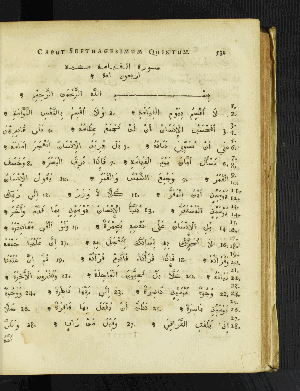 CAPUT SEPTUAGESIMUM QUINTUM.
سورة القيامة مكية
اربعون اية
بسم الله الرحمن الرحيم
لا أقسم بيوم القيامة ولا أقسم بالنفس اللوامة
أيحسب الإنسان أن لن نجمع عظامه 4. بلى قادرين
على أن نسوي بنانه بل يريد الإنسان ليفجر أمامه
يسأل أيان يوم القيامة فإذا برق البصر وخسف
القمر وجمع الشمس والقمر 10. يقول الإنسان
يومئذ أين المفر 11. كلا لا وزر 12. إلى ربك
يومئذ المستقر 13. ينبأ الإنسان يومئذ بما قدم وأخر
14. بل الإنسان على نفسه بصيرة 15. ولو ألقى معاذيره
16. لا تحرك به لسانك لتعجل به 17. إن علينا جمعه
وقرآنه 18. فإذا قرأناه فاتبع قرآنه 19. ثم إن علينا
بيانه 20. كلا بل تحبون العاجلة 21. وتذرون الآخرة
22. وجوه يومئذ ناضرة 23. إلى ربها ناظرة 24. ووجوه
يومئذ باسرة 25. تظن أن يفعل بها فاقرة 26. كلا
إذا بلغت التراقي 27. وقيل من راق 28. وظن
أنه